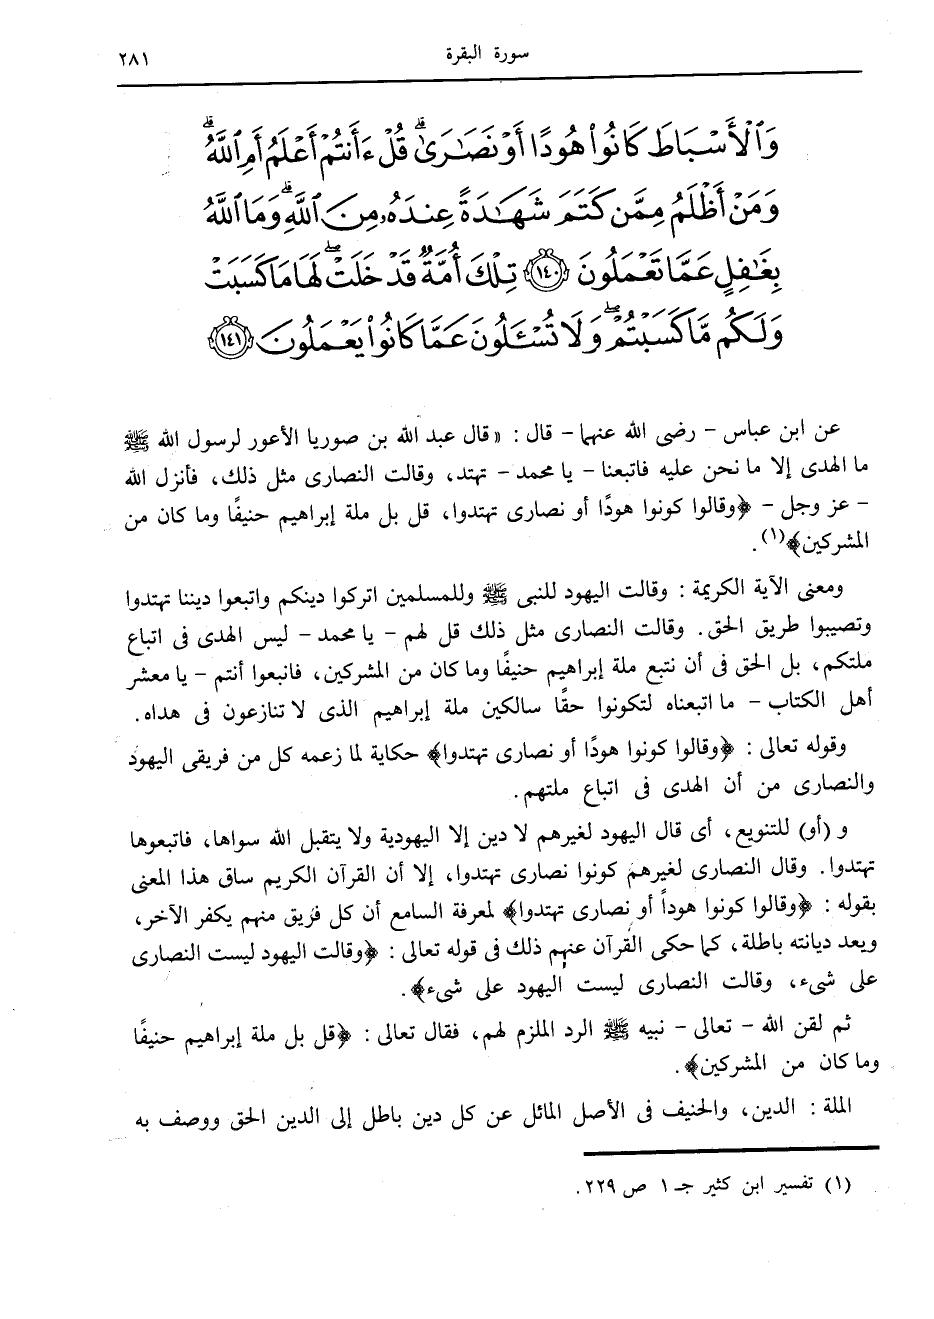 سورة البقرة ٢٨١
وَٱلْأَسْبَاطَ كَانُوا۟ هُودًا أَوْ نَصَٰرَىٰ ۗ قُلْ ءَأَنتُمْ أَعْلَمُ أَمِ ٱللَّهُ ۗ
وَمَنْ أَظْلَمُ مِمَّن كَتَمَ شَهَٰدَةً عِندَهُۥ مِنَ ٱللَّهِ ۗ وَمَا ٱللَّهُ
بِغَٰفِلٍ عَمَّا تَعْمَلُونَ ﴿١٤٠﴾ تِلْكَ أُمَّةٌ قَدْ خَلَتْ ۖ لَهَا مَا كَسَبَتْ
وَلَكُم مَّا كَسَبْتُمْ ۖ وَلَا تُسْـَٔلُونَ عَمَّا كَانُوا۟ يَعْمَلُونَ ﴿١٤١﴾
عن ابن عباس - رضى الله عنهما - قال : « قال عبد الله بن صوريا الأعور لرسول الله ﷺ
ما الهدى إلا ما نحن عليه فاتبعنا - يا محمد - تهتد، وقالت النصارى مثل ذلك، فأنزل الله
- عز وجل - ﴿وقالوا كونوا هودًا أو نصارى تهتدوا، قل بل ملة إبراهيم حنيفًا وما كان من
المشركين﴾(١).
ومعنى الآية الكريمة : وقالت اليهود للنبى ﷺ وللمسلمين اتركوا دينكم واتبعوا ديننا تهتدوا
وتصيبوا طريق الحق. وقالت النصارى مثل ذلك قل لهم - يا محمد - ليس الهدى فى اتباع
ملتكم، بل الحق فى أن نتبع ملة إبراهيم حنيفًا وما كان من المشركين، فاتبعوا أنتم - يا معشر
أهل الكتاب - ما اتبعناه لتكونوا حقًا سالكين ملة إبراهيم الذى لا تنازعون فى هداه.
وقوله تعالى : ﴿وقالوا كونوا هودًا أو نصارى تهتدوا﴾ حكاية لما زعمه كل من فريقى اليهود
والنصارى من أن الهدى فى اتباع ملتهم.
و (أو) للتنويع، أى قال اليهود لغيرهم لا دين إلا اليهودية ولا يتقبل الله سواها، فاتبعوها
تهتدوا. وقال النصارى لغيرهم كونوا نصارى تهتدوا، إلا أن القرآن الكريم ساق هذا المعنى
بقوله : ﴿وقالوا كونوا هوداً أو نصارى تهتدوا﴾ لمعرفة السامع أن كل فريق منهم يكفر الآخر،
ويعد ديانته باطلة، كما حكى القرآن عنهم ذلك فى قوله تعالى : ﴿وقالت اليهود ليست النصارى
على شىء، وقالت النصارى ليست اليهود على شىء﴾.
ثم لقن الله - تعالى - نبيه ﷺ الرد الملزم لهم، فقال تعالى : ﴿قل بل ملة إبراهيم حنيفًا
وما كان من المشركين﴾.
الملة : الدين، والحنيف فى الأصل المائل عن كل دين باطل إلى الدين الحق ووصف به
(١) تفسير ابن كثير جـ ١ ص ٢٢٩.